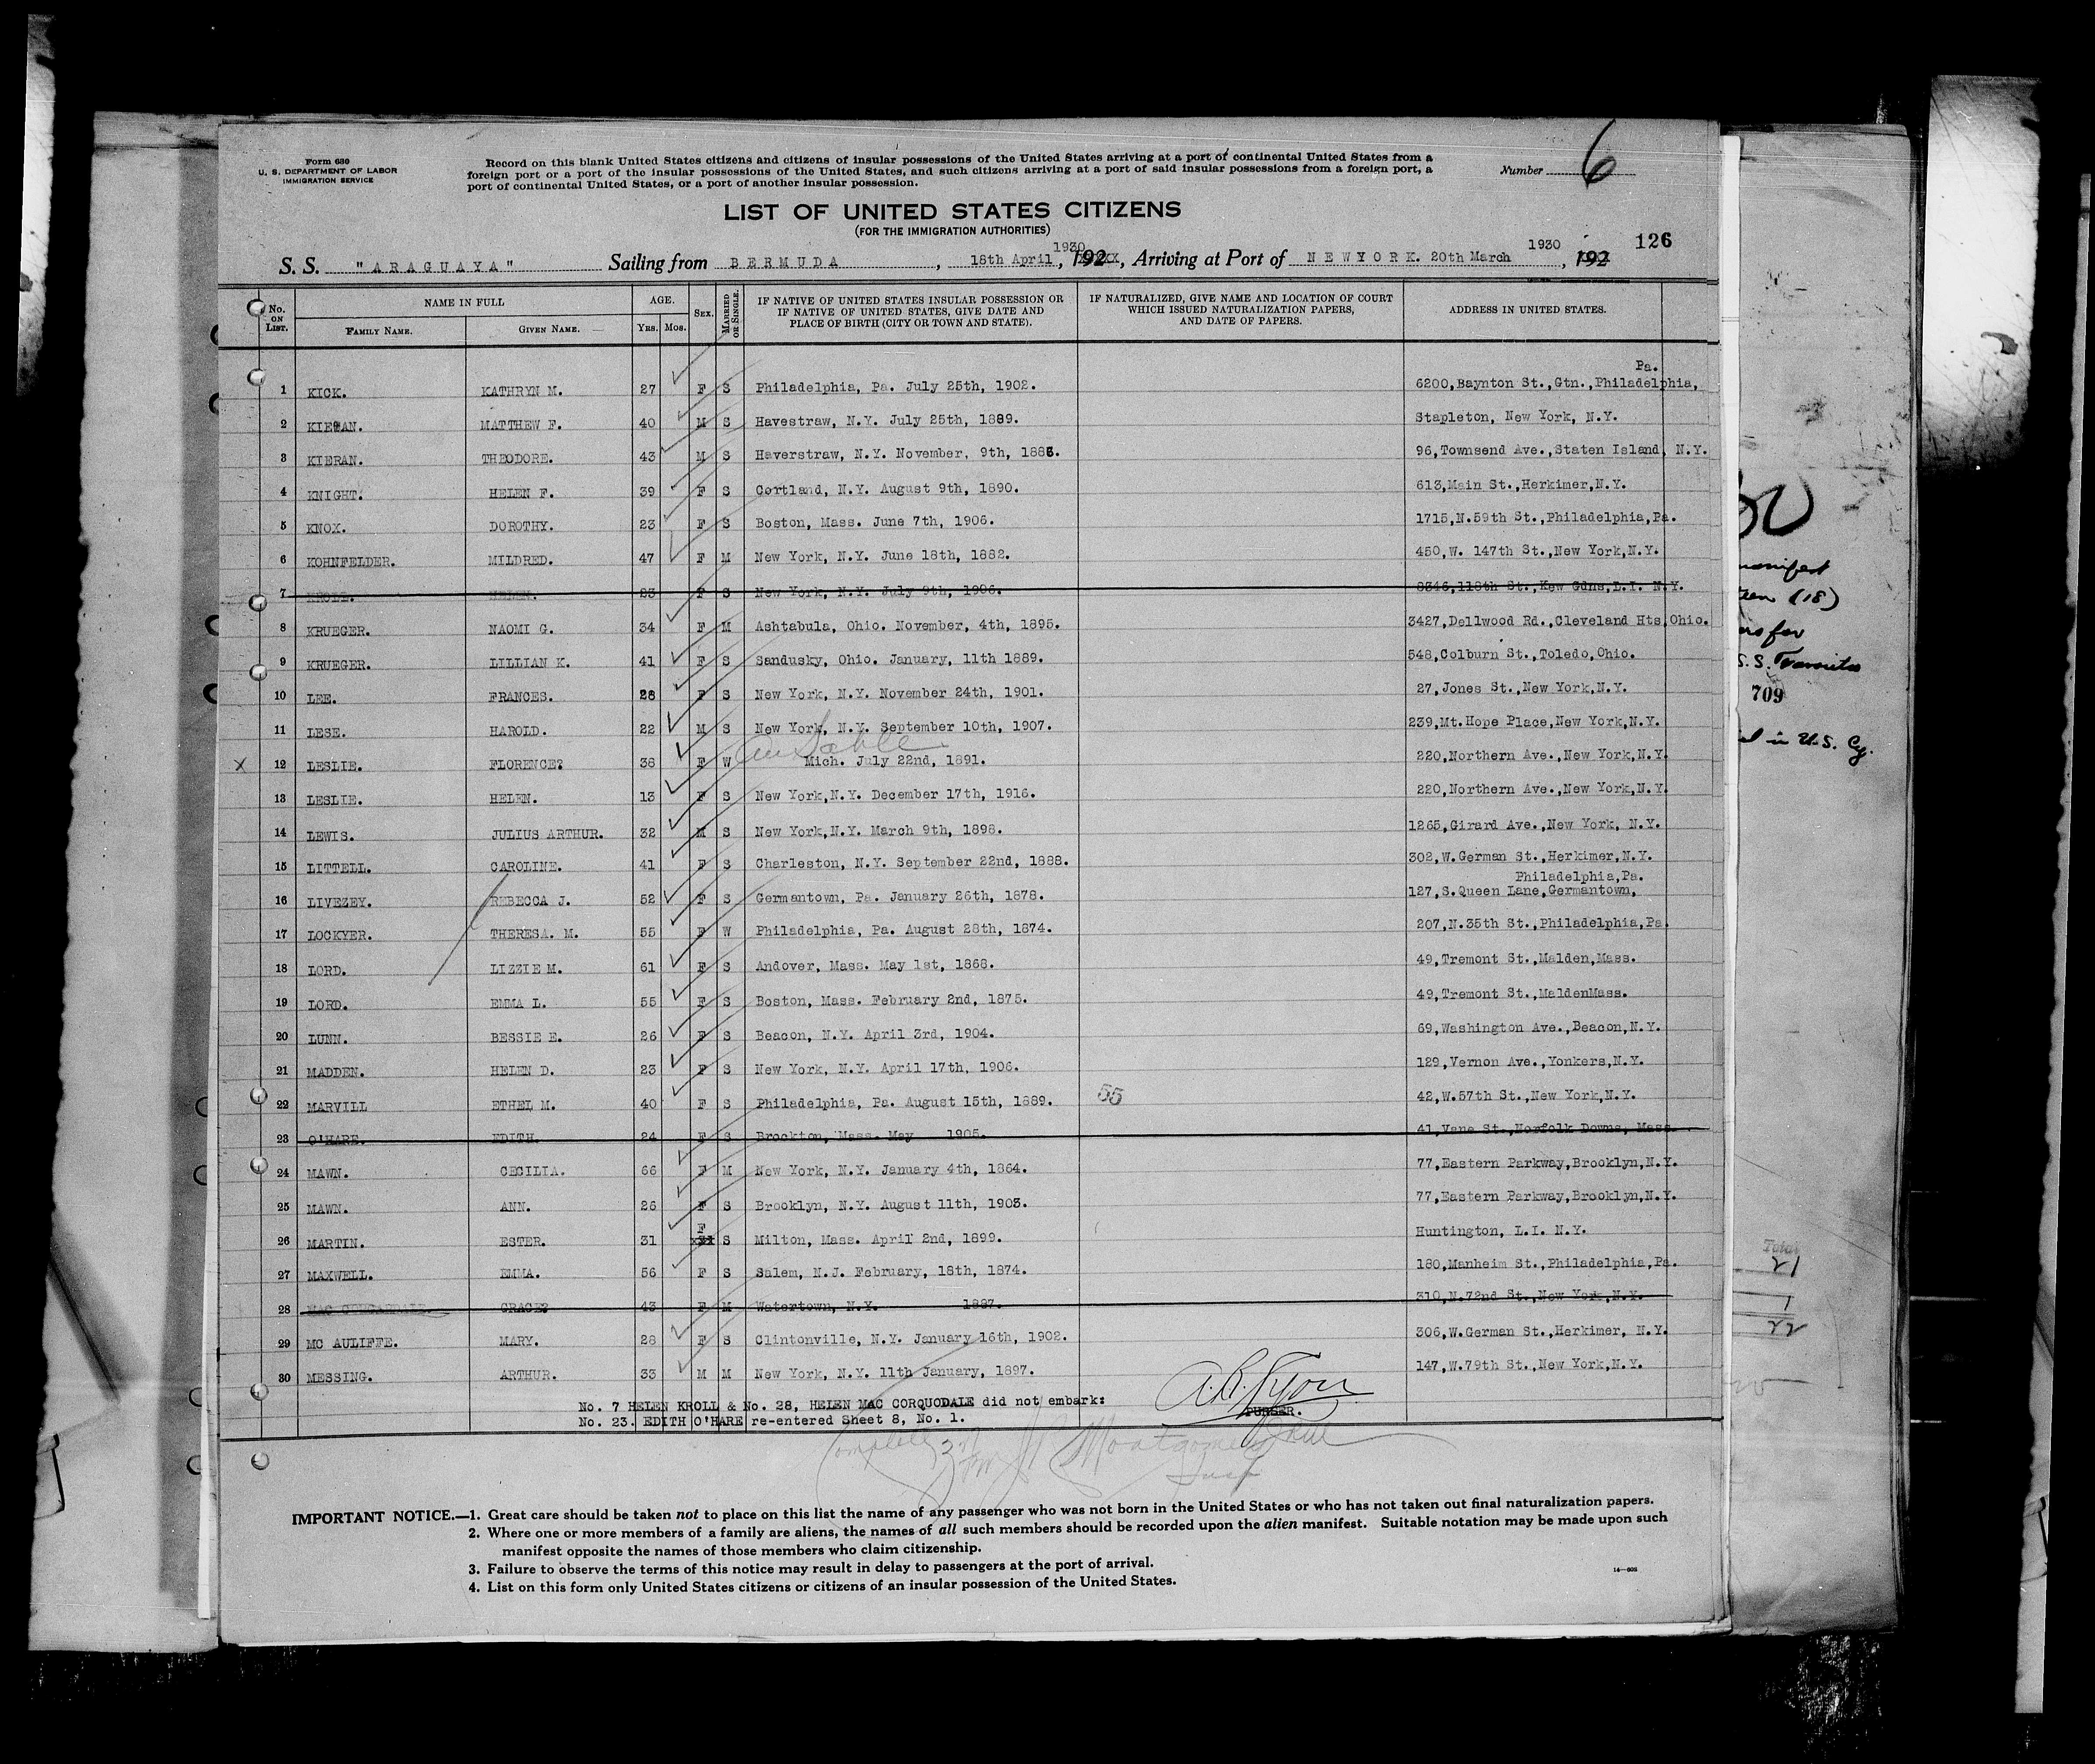 Form 630
U. S. DEPARTMENT OF LABOR
IMMIGRATION SERVICE
Record on this blank United States citizens and citizens of insular possessions of the United States arriving at a port of continental United States from a
foreign port or a port of the insular possessions of the United States, and such citizens arriving at a port of said insular possessions from a foreign port, a
port of continental United States, or a port of another insular possession.
Number 6
LIST OF UNITED STATES CITIZENS
(FOR THE IMMIGRATION AUTHORITIES)
126
S. S. "ARAGUAYA" Sailing from BERMUDA, 18th April, 1930 192, Arriving at Port of NEWYORK. 20th March 1930, 192
No. ON LIST. NAME IN FULL FAMILY NAME. GIVEN NAME. AGE. YRS. MOS. SEX. MARRIED OR SINGLE. IF NATIVE OF UNITED STATES INSULAR POSSESSION OR IF NATIVE OF UNITED STATES, GIVE DATE AND PLACE OF BIRTH (CITY OR TOWN AND STATE). IF NATURALIZED, GIVE NAME AND LOCATION OF COURT WHICH ISSUED NATURALIZATION PAPERS, AND DATE OF PAPERS. ADDRESS IN UNITED STATES.
1 KICK. KATHRYN M. 27 F S Philadelphia, Pa. July 25th, 1902. 6200,Baynton St.,Gtn.,Philadelphia, Pa.
2 KIERAN. MATTHEW F. 40 M S Havestraw, N.Y. July 25th, 1889. Stapleton, New York, N.Y.
3 KIERAN. THEODORE. 43 M S Haverstraw, N.Y. November, 9th, 1886. 96,Townsend Ave.,Staten Island, N.Y.
4 KNIGHT. HELEN F. 39 F S Cortland, N.Y. August 9th, 1890. 613,Main St.,Herkimer,N.Y.
5 KNOX. DOROTHY. 23 F S Boston, Mass. June 7th, 1906. 1715,N.59th St.,Philadelphia,Pa.
6 KOHNFELDER. MILDRED. 47 F M New York, N.Y. June 18th, 1882. 450,W. 147th St.,New York,N.Y.
7 KROLL. HELEN. 23 F S New York, N.Y. July 9th, 1906. 8346,118th St.,Kew Gdns,L.I. N.Y.
8 KRUEGER. NAOMI G. 34 F M Ashtabula, Ohio. November, 4th, 1895. 3427,Dellwood Rd.,Cleveland Hts,Ohio.
9 KRUEGER. LILLIAN K. 41 F S Sandusky, Ohio. January, 11th 1889. 548,Colburn St.,Toledo,Ohio.
10 LEE. FRANCES. 28 F S New York, N.Y. November 24th, 1901. 27,Jones St.,New York,N.Y.
11 LESE. HAROLD. 22 M S New York, N.Y. September 10th, 1907. 239,Mt.Hope Place,New York,N.Y.
X 12 LESLIE. FLORENCE? 38 F W Au Sable Mich. July 22nd, 1891. 220,Northern Ave.,New York,N.Y.
13 LESLIE. HELEN. 13 F S New York,N.Y. December 17th, 1916. 220,Northern Ave.,New York,N.Y.
14 LEWIS. JULIUS ARTHUR. 32 M S New York,N.Y. March 9th, 1898. 1265,Girard Ave.,New York, N.Y.
15 LITTELL. CAROLINE. 41 F S Charleston, N.Y. September 22nd, 1888. 302,W.German St.,Herkimer,N.Y.
16 LIVEZEY. REBECCA J. 52 F S Germantown, Pa. January 26th, 1878. 127,S.Queen Lane,Germantown, Philadelphia,Pa.
17 LOCKYER. THERESA. M. 55 F W Philadelphia, Pa. August 28th, 1874. 207,N.35th St.,Philadelphia,Pa.
18 LORD. LIZZIE M. 61 F S Andover, Mass. May 1st, 1868. 49,Tremont St.,Malden,Mass.
19 LORD. EMMA L. 55 F S Boston, Mass. February 2nd, 1875. 49,Tremont St.,MaldenMass.
20 LUNN. BESSIE E. 26 F S Beacon, N.Y. April 3rd, 1904. 69,Washington Ave.,Beacon,N.Y.
21 MADDEN. HELEN D. 23 F S New York, N.Y. April 17th, 1906. 129,Vernon Ave.,Yonkers,N.Y.
22 MARVILL ETHEL M. 40 F S Philadelphia, Pa. August 15th, 1889. 55 42,W.57th St.,New York,N.Y.
23 O'HARE. EDITH 24 F S Brockton, Mass. May 1905. 41,Vane St.,Norfolk Downs, Mass
24 MAWN. CECILIA. 66 F M New York, N.Y. January 4th, 1864. 77,Eastern Parkway,Brooklyn,N.Y.
25 MAWN. ANN. 26 F S Brooklyn, N.Y. August 11th, 1903. 77,Eastern Parkway,Brooklyn,N.Y.
26 MARTIN. ESTER. 31 F S Milton, Mass. April 2nd, 1899. Huntington, L.I. N.Y.
27 MAXWELL. EMMA. 56 F S Salem, N.J. February, 18th, 1874. 180,Manheim St.,Philadelphia,Pa.
28 MAC CORQUODALE. GRACE? 43 F M Watertown, N.Y. 1887. 310,N.72nd St.,New York,N.Y.
29 MC AULIFFE. MARY. 28 F S Clintonville, N.Y. January 16th, 1902. 306,W.German St.,Herkimer, N.Y.
30 MESSING. ARTHUR. 33 M M New York, N.Y. 11th January, 1897. 147,W.79th St.,New York,N.Y.
No. 7 HELEN KROLL & No. 28, HELEN MAC CORQUODALE did not embark:
No. 23. EDITH O'HARE re-entered Sheet 8, No. 1.
PURSER.
Montgomery
Insp
IMPORTANT NOTICE.—1. Great care should be taken not to place on this list the name of any passenger who was not born in the United States or who has not taken out final naturalization papers.
2. Where one or more members of a family are aliens, the names of all such members should be recorded upon the alien manifest. Suitable notation may be made upon such
manifest opposite the names of those members who claim citizenship.
3. Failure to observe the terms of this notice may result in delay to passengers at the port of arrival.
4. List on this form only United States citizens or citizens of an insular possession of the United States.
14—605
manifest
(18)
for
S.S.
709
in U.S. Cy.
Total
21
1
22